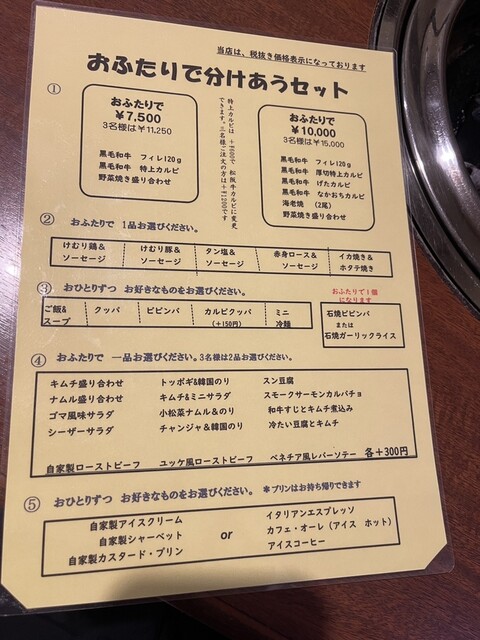 当店は、税抜き価格表示になっております
おふたりで分けあうセット
①
おふたりで
¥7,500
3名様は¥11,250
黒毛和牛 フィレ120g
黒毛和牛 特上カルビ
野菜焼き盛り合わせ
特上カルビは +¥600で 松阪牛カルビに変更
できます。三名様ご注文の方は+¥1200です
おふたりで
¥10,000
3名様は¥15,000
黒毛和牛 フィレ120g
黒毛和牛 厚切特上カルビ
黒毛和牛 げたカルビ
黒毛和牛 なかおちカルビ
海老焼 (2尾)
野菜焼き盛り合わせ
② おふたりで 1品お選びください。
けむり鶏&ソーセージ
けむり豚&ソーセージ
タン塩&ソーセージ
赤身ロース&ソーセージ
イカ焼き&ホタテ焼き
③ おひとりずつ お好きなものをお選びください。
ご飯&スープ
クッパ
ビビンバ
カルビクッパ
(+150円)
ミニ冷麺
おふたりで1個
になります
石焼ビビンバ
または
石焼ガーリックライス
④ おふたりで 一品お選びください。3名様は2品お選びください。
キムチ盛り合わせ トッポギ&韓国のり スン豆腐
ナムル盛り合わせ キムチ&ミニサラダ スモークサーモンカルパチョ
ゴマ風味サラダ 小松菜ナムル&のり 和牛すじとキムチ煮込み
シーザーサラダ チャンジャ&韓国のり 冷たい豆腐とキムチ
自家製ローストビーフ ユッケ風ローストビーフ ベネチア風レバーソテー 各+300円
⑤ おひとりずつ お好きなものをお選びください。 *プリンはお持ち帰りできます
自家製アイスクリーム
自家製シャーベット
自家製カスタード・プリン
or
イタリアンエスプレッソ
カフェ・オーレ(アイス ホット)
アイスコーヒー